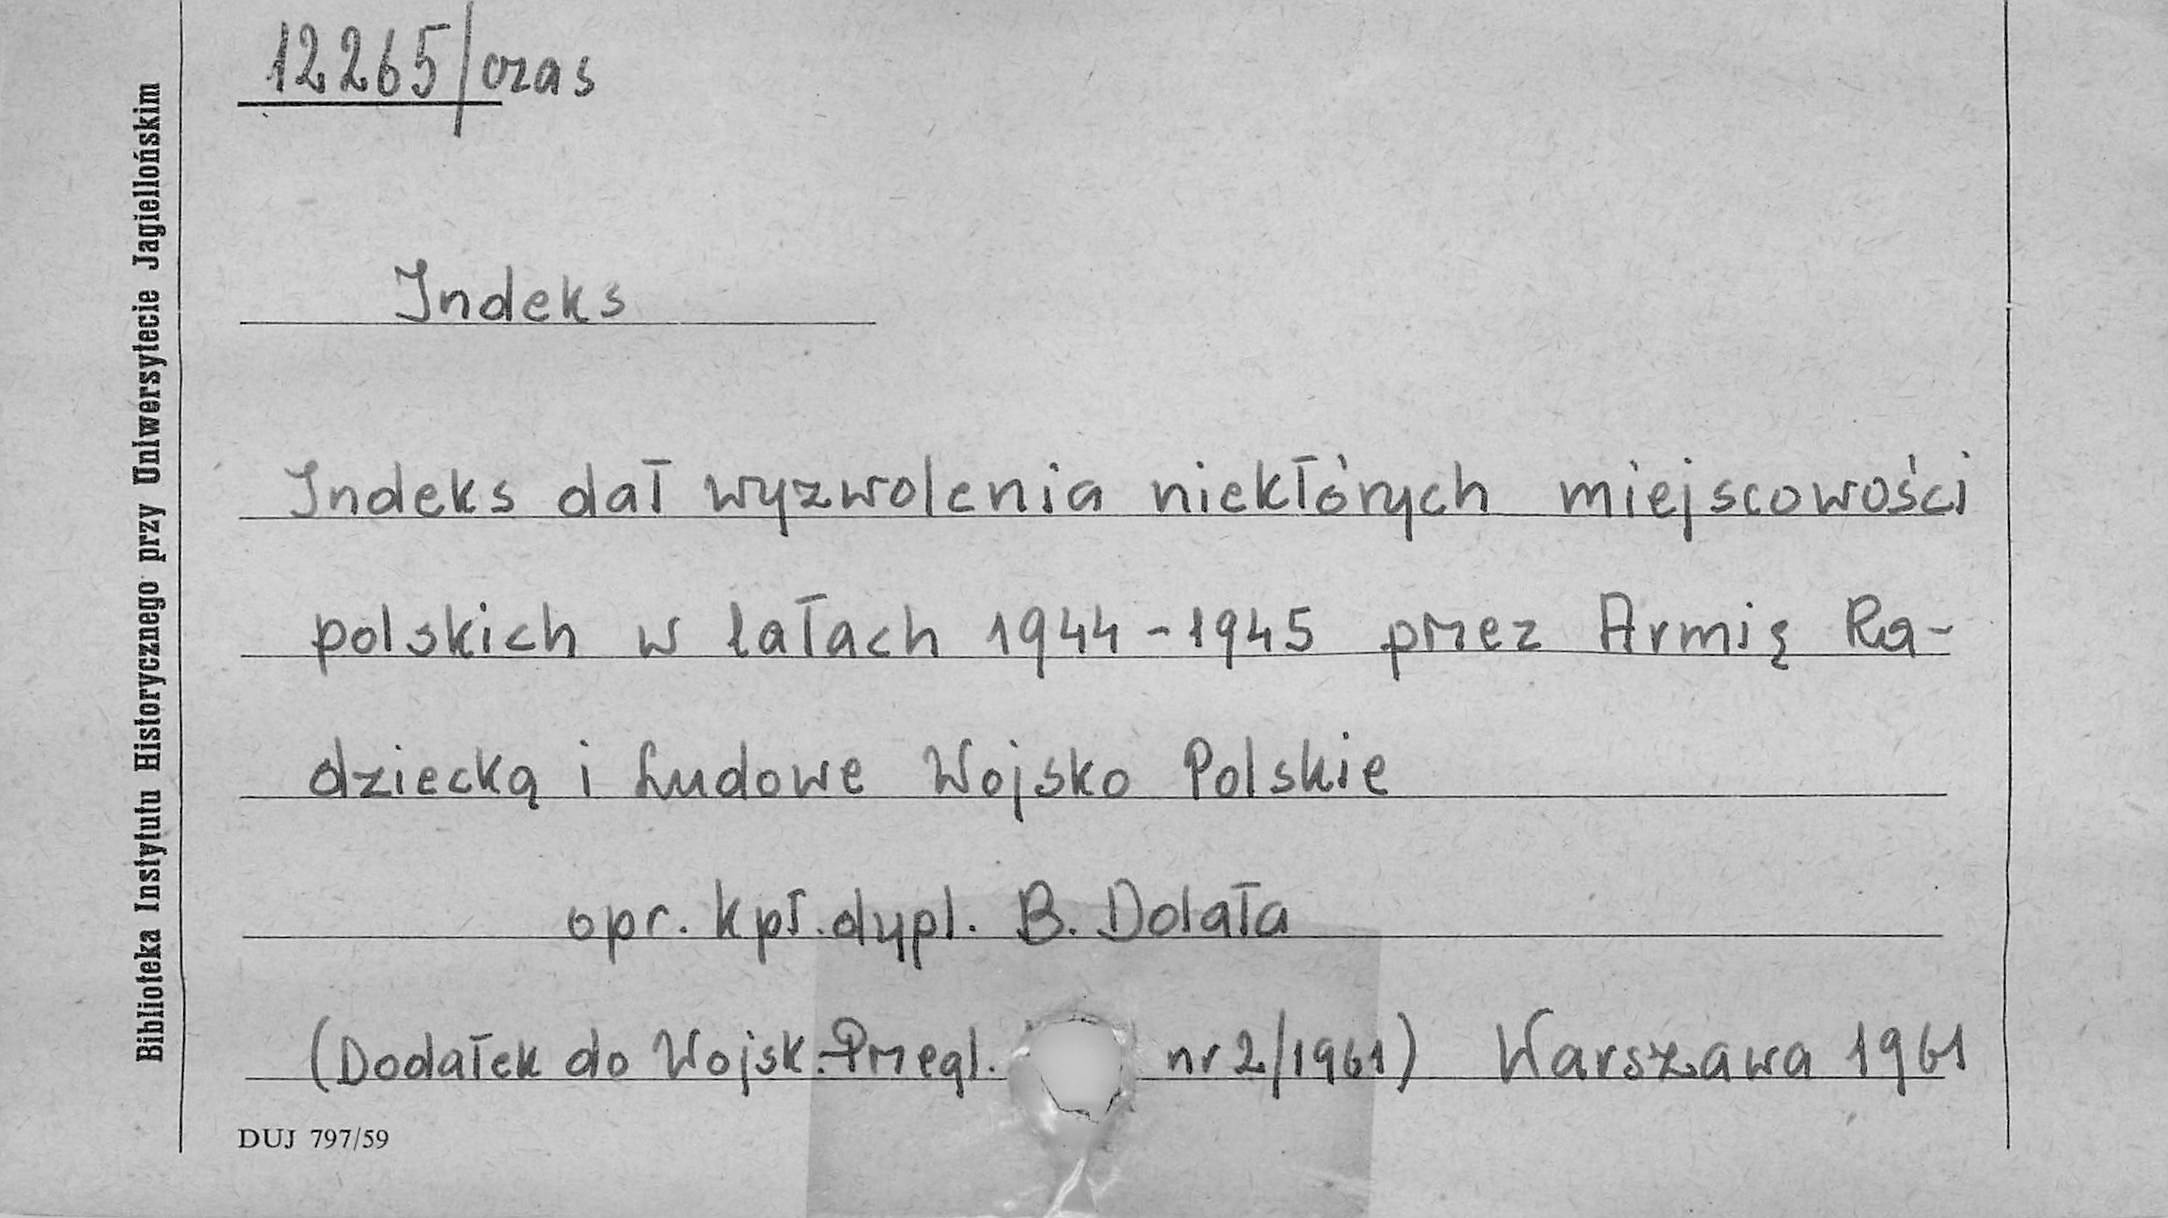 12265/czas
Indeks
Indeks dat wyzwolenia niektórych miejscowości
polskich w latach 1944-1945 przez Armię Ra-
dziecką i Ludowe Wojsko Polskie
opr. kpt. dypl. B. Dolata
(Dodatek do Wojsk. Przegl. nr 2/1961) Warszawa 1961
DUJ 797/59
Biblioteka Instytutu Historycznego przy Uniwersytecie Jagiellońskim